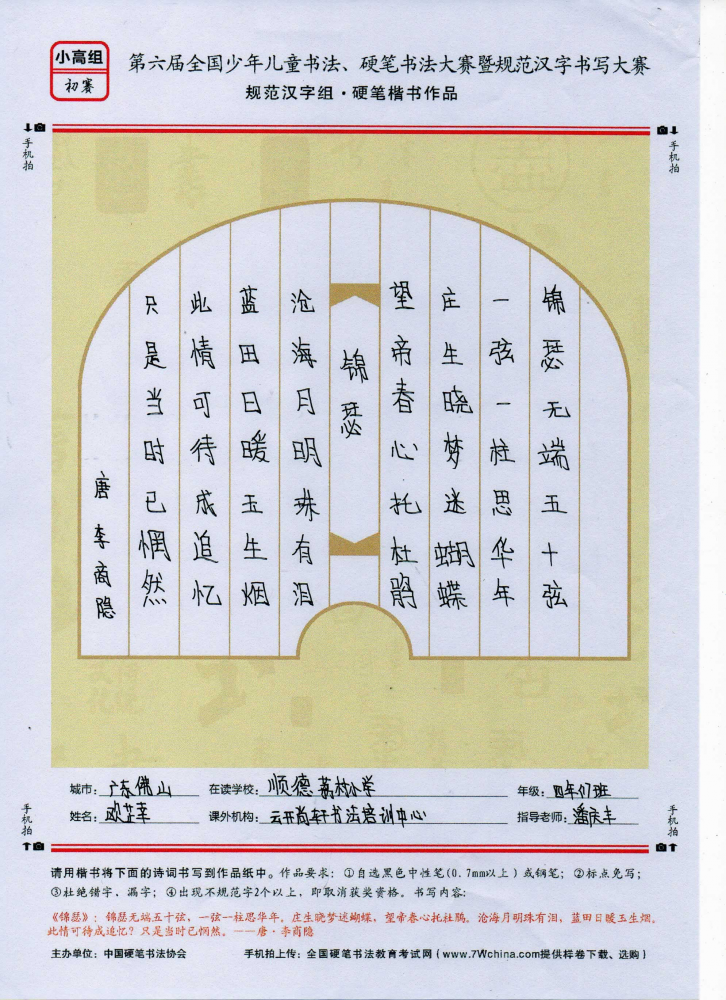 小高组
初赛
第六届全国少年儿童书法、硬笔书法大赛暨规范汉字书写大赛
规范汉字组·硬笔楷书作品
手机拍
手机拍
锦瑟无端五十弦
一弦一柱思华年
庄生晓梦迷蝴蝶
望帝春心托杜鹃
锦瑟
沧海月明珠有泪
蓝田日暖玉生烟
此情可待成追忆
只是当时已惘然
唐李商隐
城市：广东佛山 在读学校：顺德荔村小学 年级：四年07班
姓名：欧芷幸 课外机构：云开尚轩书法培训中心 指导老师：潘庆丰
手机拍
手机拍
请用楷书将下面的诗词书写到作品纸中。作品要求：①自选黑色中性笔(0.7mm以上)或钢笔；②标点免写；
③杜绝错字、漏字；④出现不规范字2个以上，即取消获奖资格。书写内容：
《锦瑟》：锦瑟无端五十弦，一弦一柱思华年。庄生晓梦迷蝴蝶，望帝春心托杜鹃。沧海月明珠有泪，蓝田日暖玉生烟。
此情可待成追忆？只是当时已惘然。——唐·李商隐
主办单位：中国硬笔书法协会 手机拍上传：全国硬笔书法教育考试网(www.7Wchina.com提供样卷下载、选购)